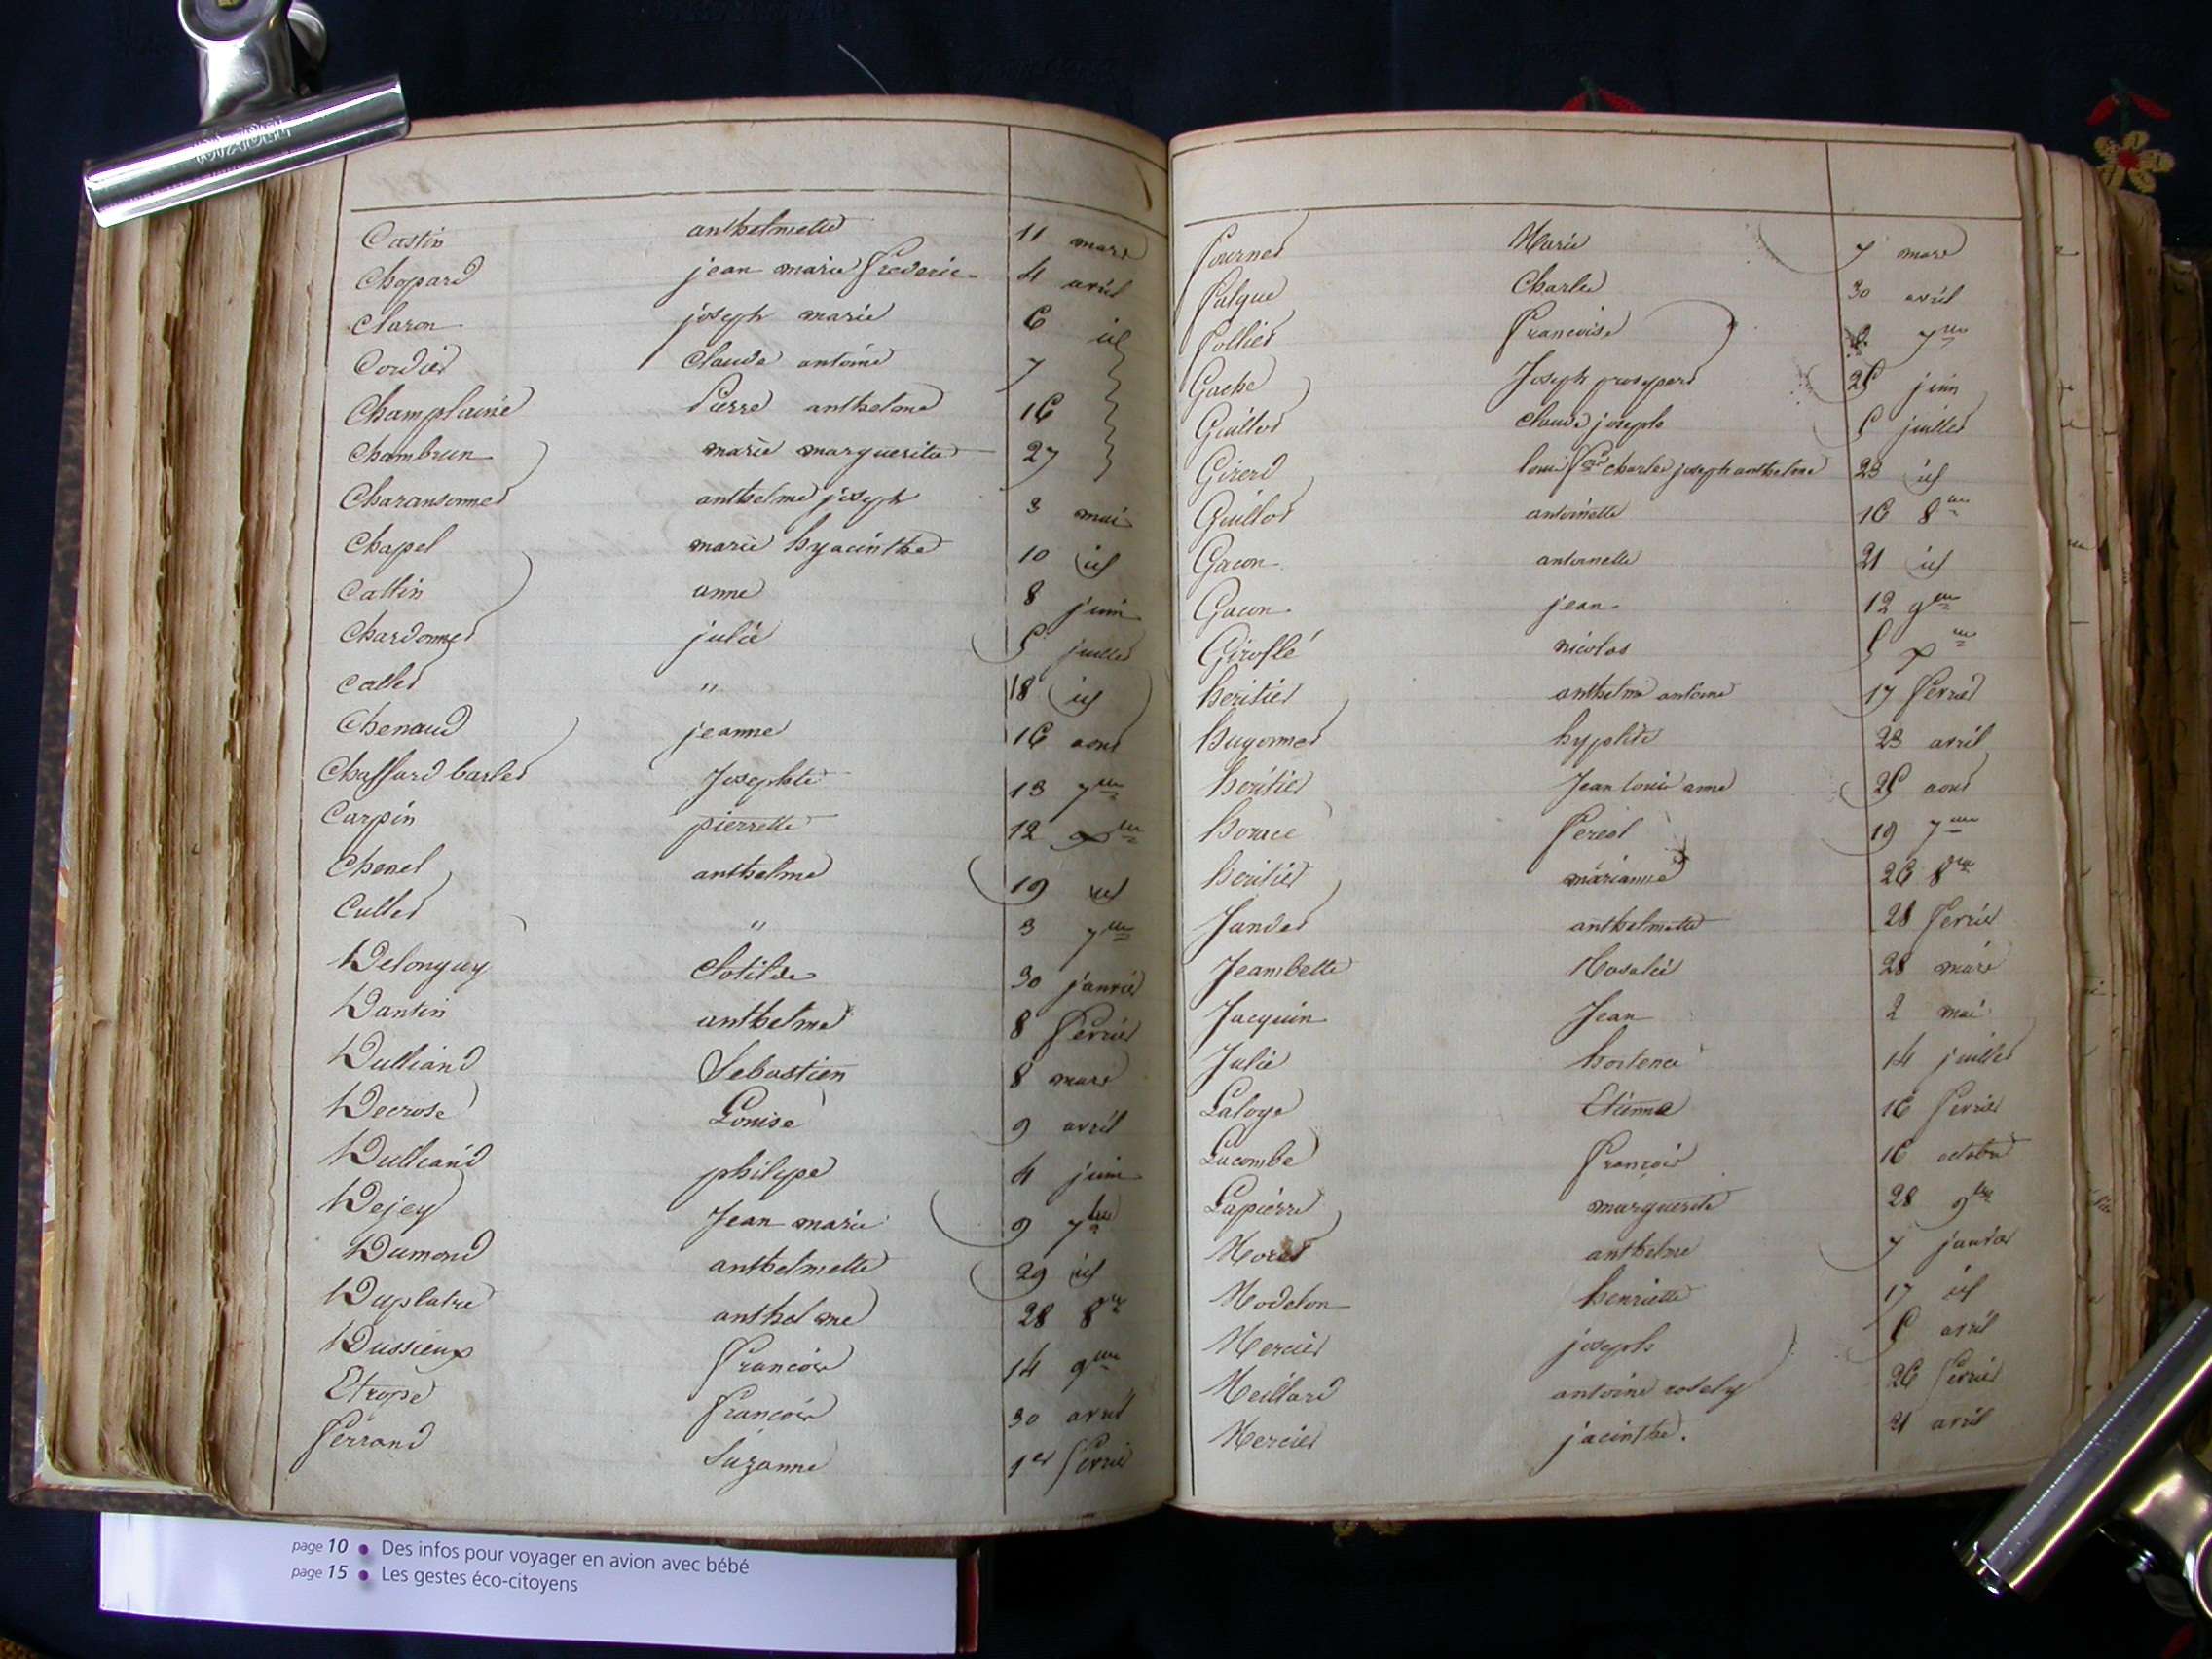 Castin anthelmette 11 mars
Chopard jean marie frederic 4 avril
Claron joseph marie 6 id
Cordier Claude antoine 7
Champlaine Pierre anthelme 16
Chambrun marie marguerite 27
Charansonnet anthelme joseph 3 mai
Chapel marie hyacinthe 10 id
Cattin anne 8 juin
Chardonnet julie 5 juillet
Callet " 18 id
Chenaud jeanne 16 aout
Chaffard barlet Josephte 13 7bre
Carpin pierrette 12 xbre
Chenel anthelme 19 id
Cullet " 3 7bre
Delonguy Clotilde 30 janvier
Dantin anthelme 8 fevrier
Dulliand Sebastien 8 mars
Decrose Louise 9 avril
Dulliand philype 4 juin
Dejey Jean marie 9 7bre
Dumond anthelmette 29 id
Duplatre anthelme 28 8bre
Dussieux Francois 14 9bre
Etrope francois 30 avril
Ferrand Suzanne 1er fevrier
Fournet Marie 7 mars
Falque Charles 30 avril
Follier Francoise 7bre
Gache Joseph prosper 25 juin
Guillot Claude joseph 5 juillet
Girerd louis charles joseph anthelme 23 id
Guillot antoinette 16 8bre
Gacon antoinette 21 id
Gacon jean 12 9bre
Giroflé nicolas 5 xbre
heritier anthelme antoine 17 fevrier
hugonnet hypolite 23 avril
heritier Jean louis anne 25 aout
horace fereol 19 7bre
heritier marianne 26 8bre
Jandet anthelmette 28 fevrier
Jeambette Rosalie 28 mars
Jacquin Jean 2 mai
Julie hortence 14 juillet
Laloge Etienne 16 fevrier
Lacombe François 16 octobre
Lapierre marguerite 28 9bre
Moret anthelme 7 janvier
Modelon henriette 17 id
Mercier joseph 5 avril
Meillard antoine rosely 26 fevrier
Mercier jacinthe. 21 avril
page 10 • Des infos pour voyager en avion avec bébé
page 15 • Les gestes éco-citoyens